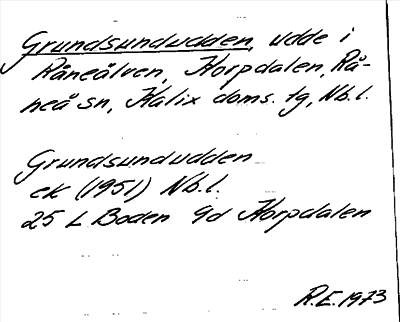 Grundsundudden, udde i
Råneälven, Korpdalen, Rå-
neå sn, Kalix doms. tg, Nb.l.
Grundsundudden
ek (1951) Nb.l.
25 L Boden Gd Korpdalen
R.E. 1973